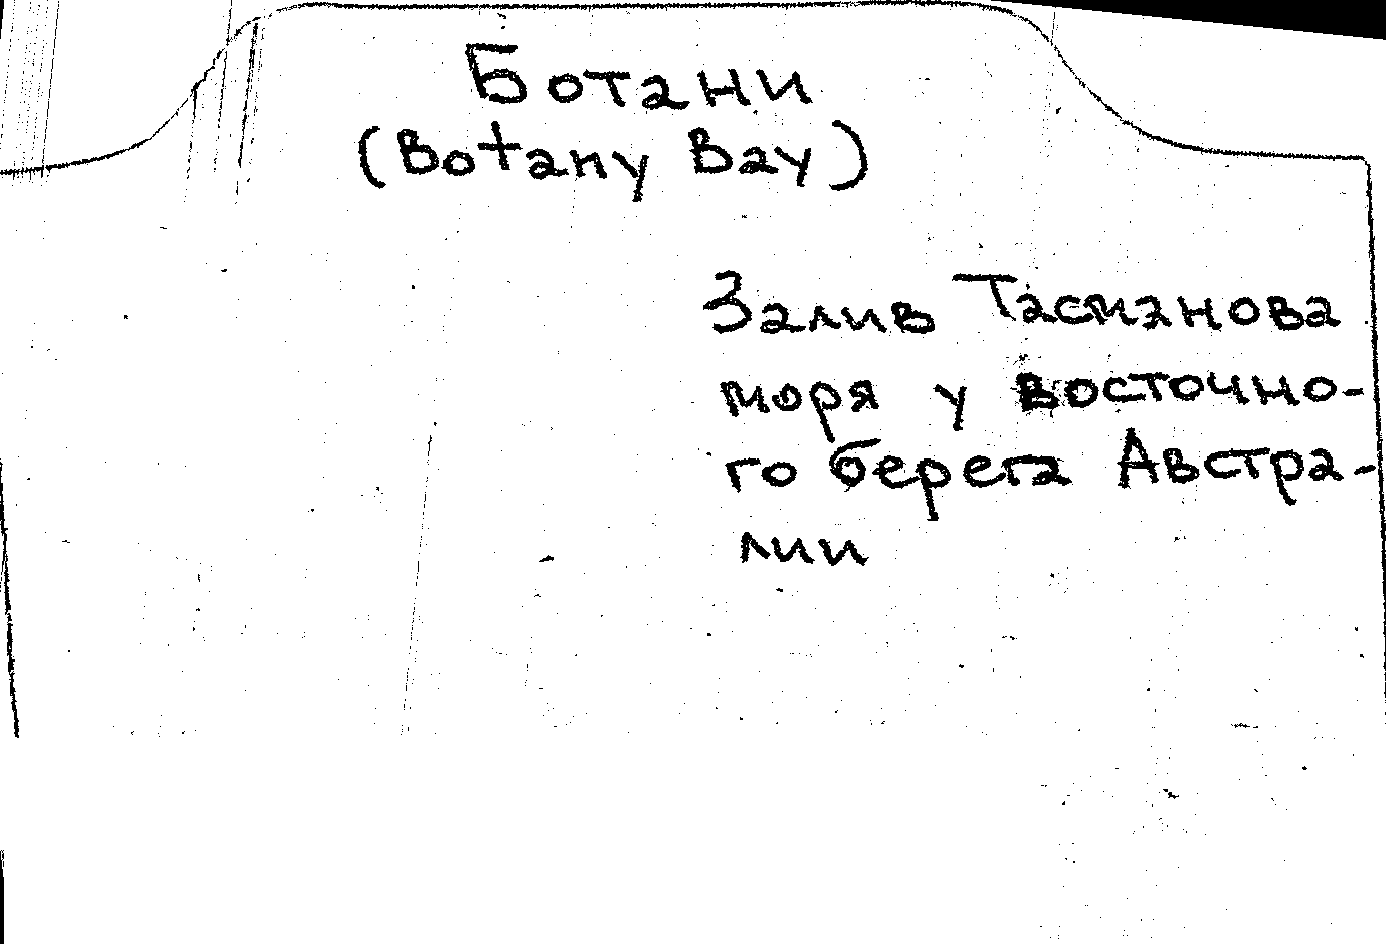 Ботани
(Botany Bay)
Залив Тасманова
моря у восточно-
го берега Австра-
лии